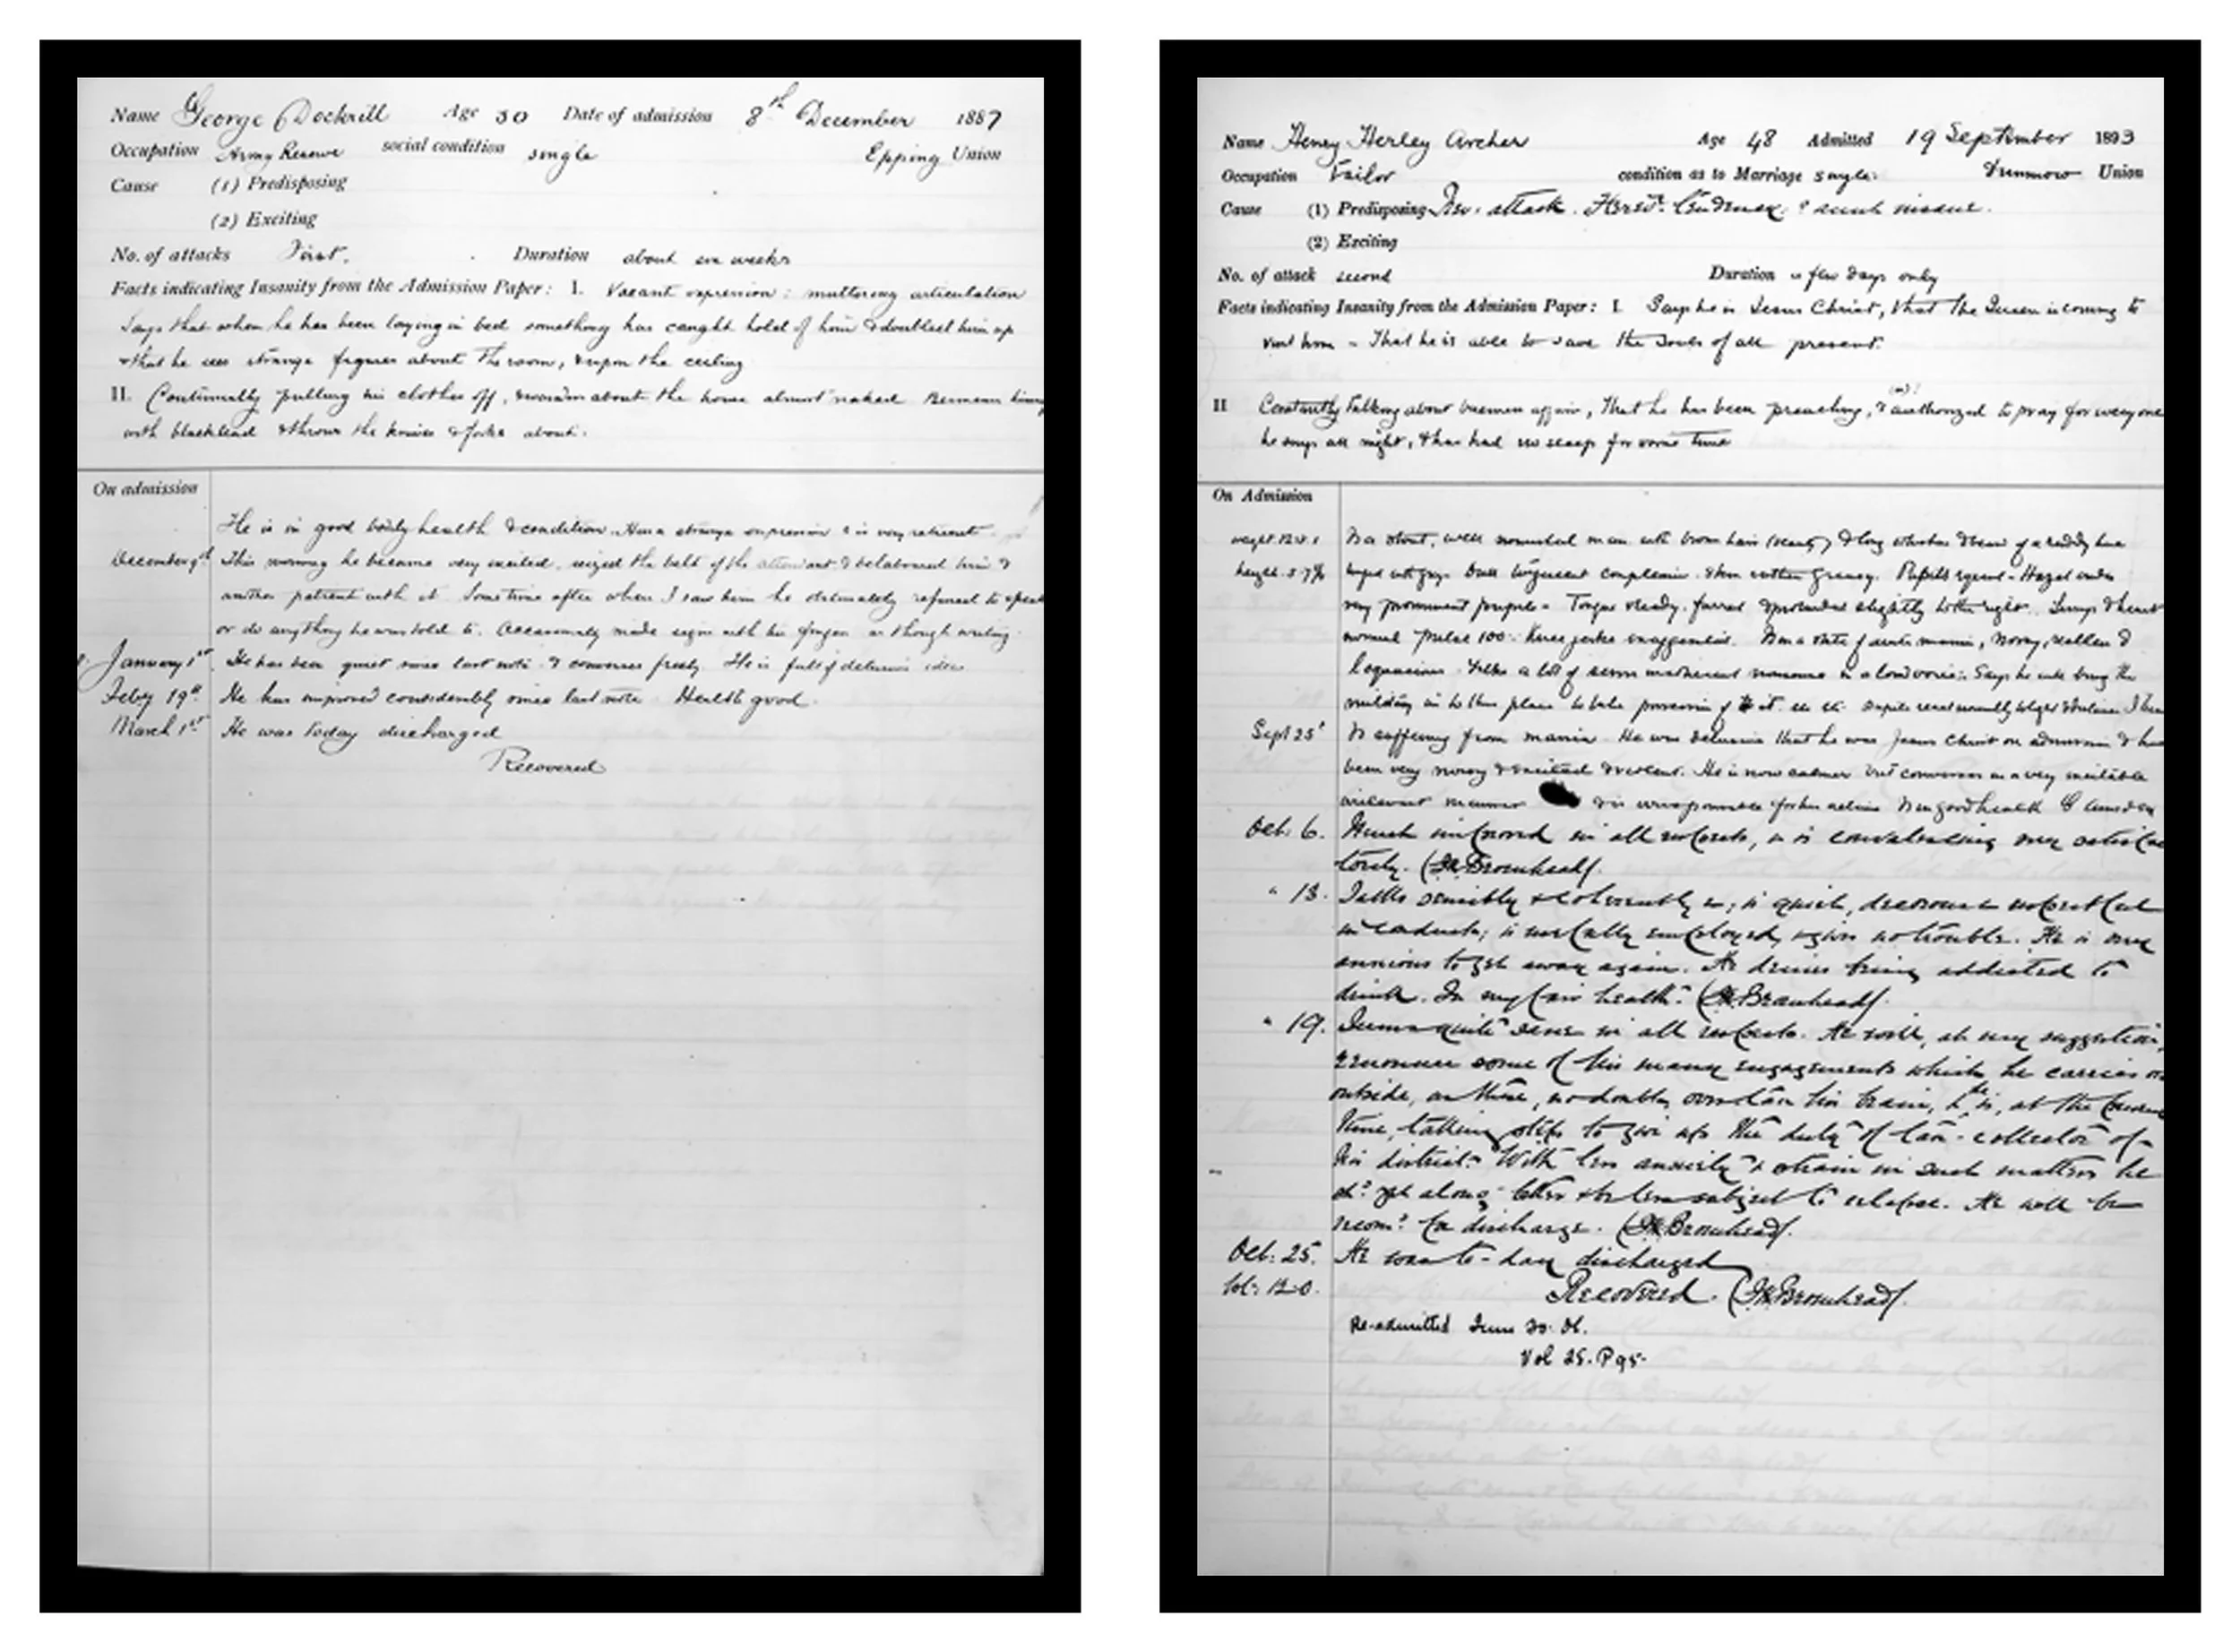 Name George Dockrill Age 30 Date of admission 8th December 1887
Occupation Army Reserve social condition single Epping Union
Cause (1) Predisposing
(2) Exciting
No. of attacks First. Duration about six weeks
Facts indicating Insanity from the Admission Paper: I. Vacant expression: muttering articulation
Says that when he has been laying in bed something has caught hold of him & doubled him up
& that he sees strange figures about the room, & upon the ceiling
II. Continually pulling his clothes off, & wanders about the house almost naked Besmears himself
with blacklead & throws the knives & forks about.
On admission
He is in good bodily health & condition. Has a strange expression & is very reticent
December 9th This morning he became very excited, seized the belt of the attendant & belaboured him &
another patient with it Sometime after when I saw him he obstinately refused to speak
or do anything he was told to. Occasionally made signs with his fingers as though writing.
January 1st He has been quiet since last note & converses freely He is full of delusive ideas
Feby 19th He has improved considerably since last note Health good.
March 1st He was today discharged
Recovered
Name Henry Herley Archer Age 48 Admitted 19 September 1893
Occupation Tailor condition as to Marriage single Dunmow Union
Cause (1) Predisposing Prev. attack. ? aunt insane.
(2) Exciting
No. of attack second Duration a few days only
Facts indicating Insanity from the Admission Paper: I. Says he is Jesus Christ, that the Queen is coming to
visit him - That he is able to save the souls of all present.
II Constantly talking about business affairs, that he has been preaching, & (is) authorized to pray for everyone
he sings all night, & has had no sleep for some time
On Admission
weight. 12.4.1 Is a stout, well nourished man with brown hair (scanty) & long whiskers & beard of a ruddy hue
height. 5.7 tinged with grey. Dull complexion. Skin rather greasy. Pupils equal - Hazel irides
very prominent Tongue steady, furred & protruded slightly to the right. Lungs & heart
normal Pulse 100. Knee jerks exaggerated. Is in a state of acute mania, noisy, restless &
loquacious. Talks a lot of incoherent nonsense in a loud voice. Says he will bring the
military in to this place to take possession of it
Sept 25th Is suffering from mania. He was delusive that he was Jesus Christ on admission & has
been very noisy & excited & violent. He is now calmer but converses in a very excitable
irrelevant manner & is irresponsible for his actions Is in good health
Oct: 6. Much improved in all respects, & is convalescing very satisfac
torily. (Bromhead).
" 13. Talks sensibly & coherently; is quiet, decorous & respectful
in conduct; is usefully employed, & gives no trouble. He is very
anxious to get away again. He denies being addicted to
drink. In very fair health. (Bromhead).
" 19. Seems quite sane in all respects. He will, at my suggestion,
renounce some of his many engagements which he carries on
outside, as these, no doubt, overtax his brain, & he is, at the present
time, taking steps to give up the duty of tax-collector of
his district. With less anxiety & strain in such matters he
shd. get along better & be less subject to relapse. He will be
recomd. for discharge. (Bromhead).
Oct: 25. He was to-day discharged
Wt: 12-0. Recovered. (Bromhead).
Re-admitted June 20. 06.
Vol 25. P 95.